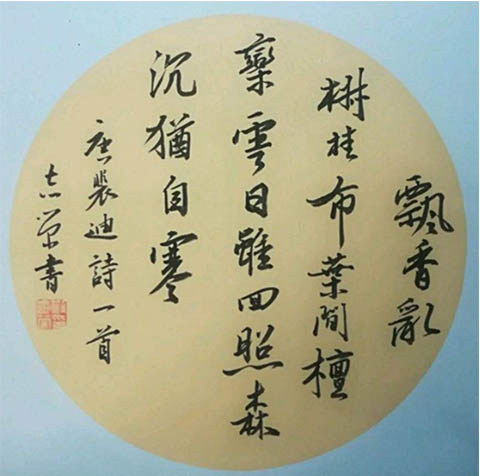 飄香亂
椒桂布葉間檀
欒雲日雖回照森
沉猶自寒
唐裴迪詩一首
志榮書